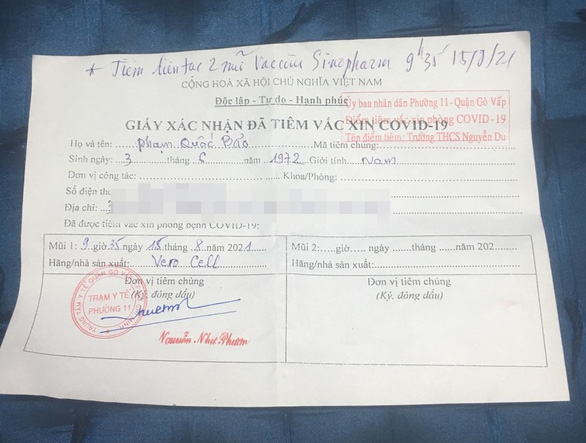 * Tiêm liên tục 2 mũi Vaccine Sinopharm 9h35 15/8/21
CỘNG HOÀ XÃ HỘI CHỦ NGHĨA VIỆT NAM
Độc lập - Tự do - Hạnh phúc
Ủy ban nhân dân Phường 11 - Quận Gò Vấp
Điểm tiêm vắc xin phòng COVID - 19
Tên điểm tiêm: Trường THCS Nguyễn Du
GIẤY XÁC NHẬN ĐÃ TIÊM VẮC XIN COVID-19
Họ và tên: Phạm Quốc Bảo Mã tiêm chủng:
Sinh ngày: 3 tháng 6 năm 1972 Giới tính: Nam
Đơn vị công tác: Khoa/Phòng:
Số điện thoại
Địa chỉ: 3
Đã được tiêm vắc xin phòng bệnh COVID-19:
Mũi 1: 9 giờ 35 ngày 15 tháng 8 năm 2021
Hãng/nhà sản xuất: Vero Cell
Mũi 2: giờ ngày tháng năm 202
Hãng/nhà sản xuất:
Đơn vị tiêm chủng
(Ký, đóng dấu)
TRẠM Y TẾ
PHƯỜNG 11
Đơn vị tiêm chủng
(Ký, đóng dấu)